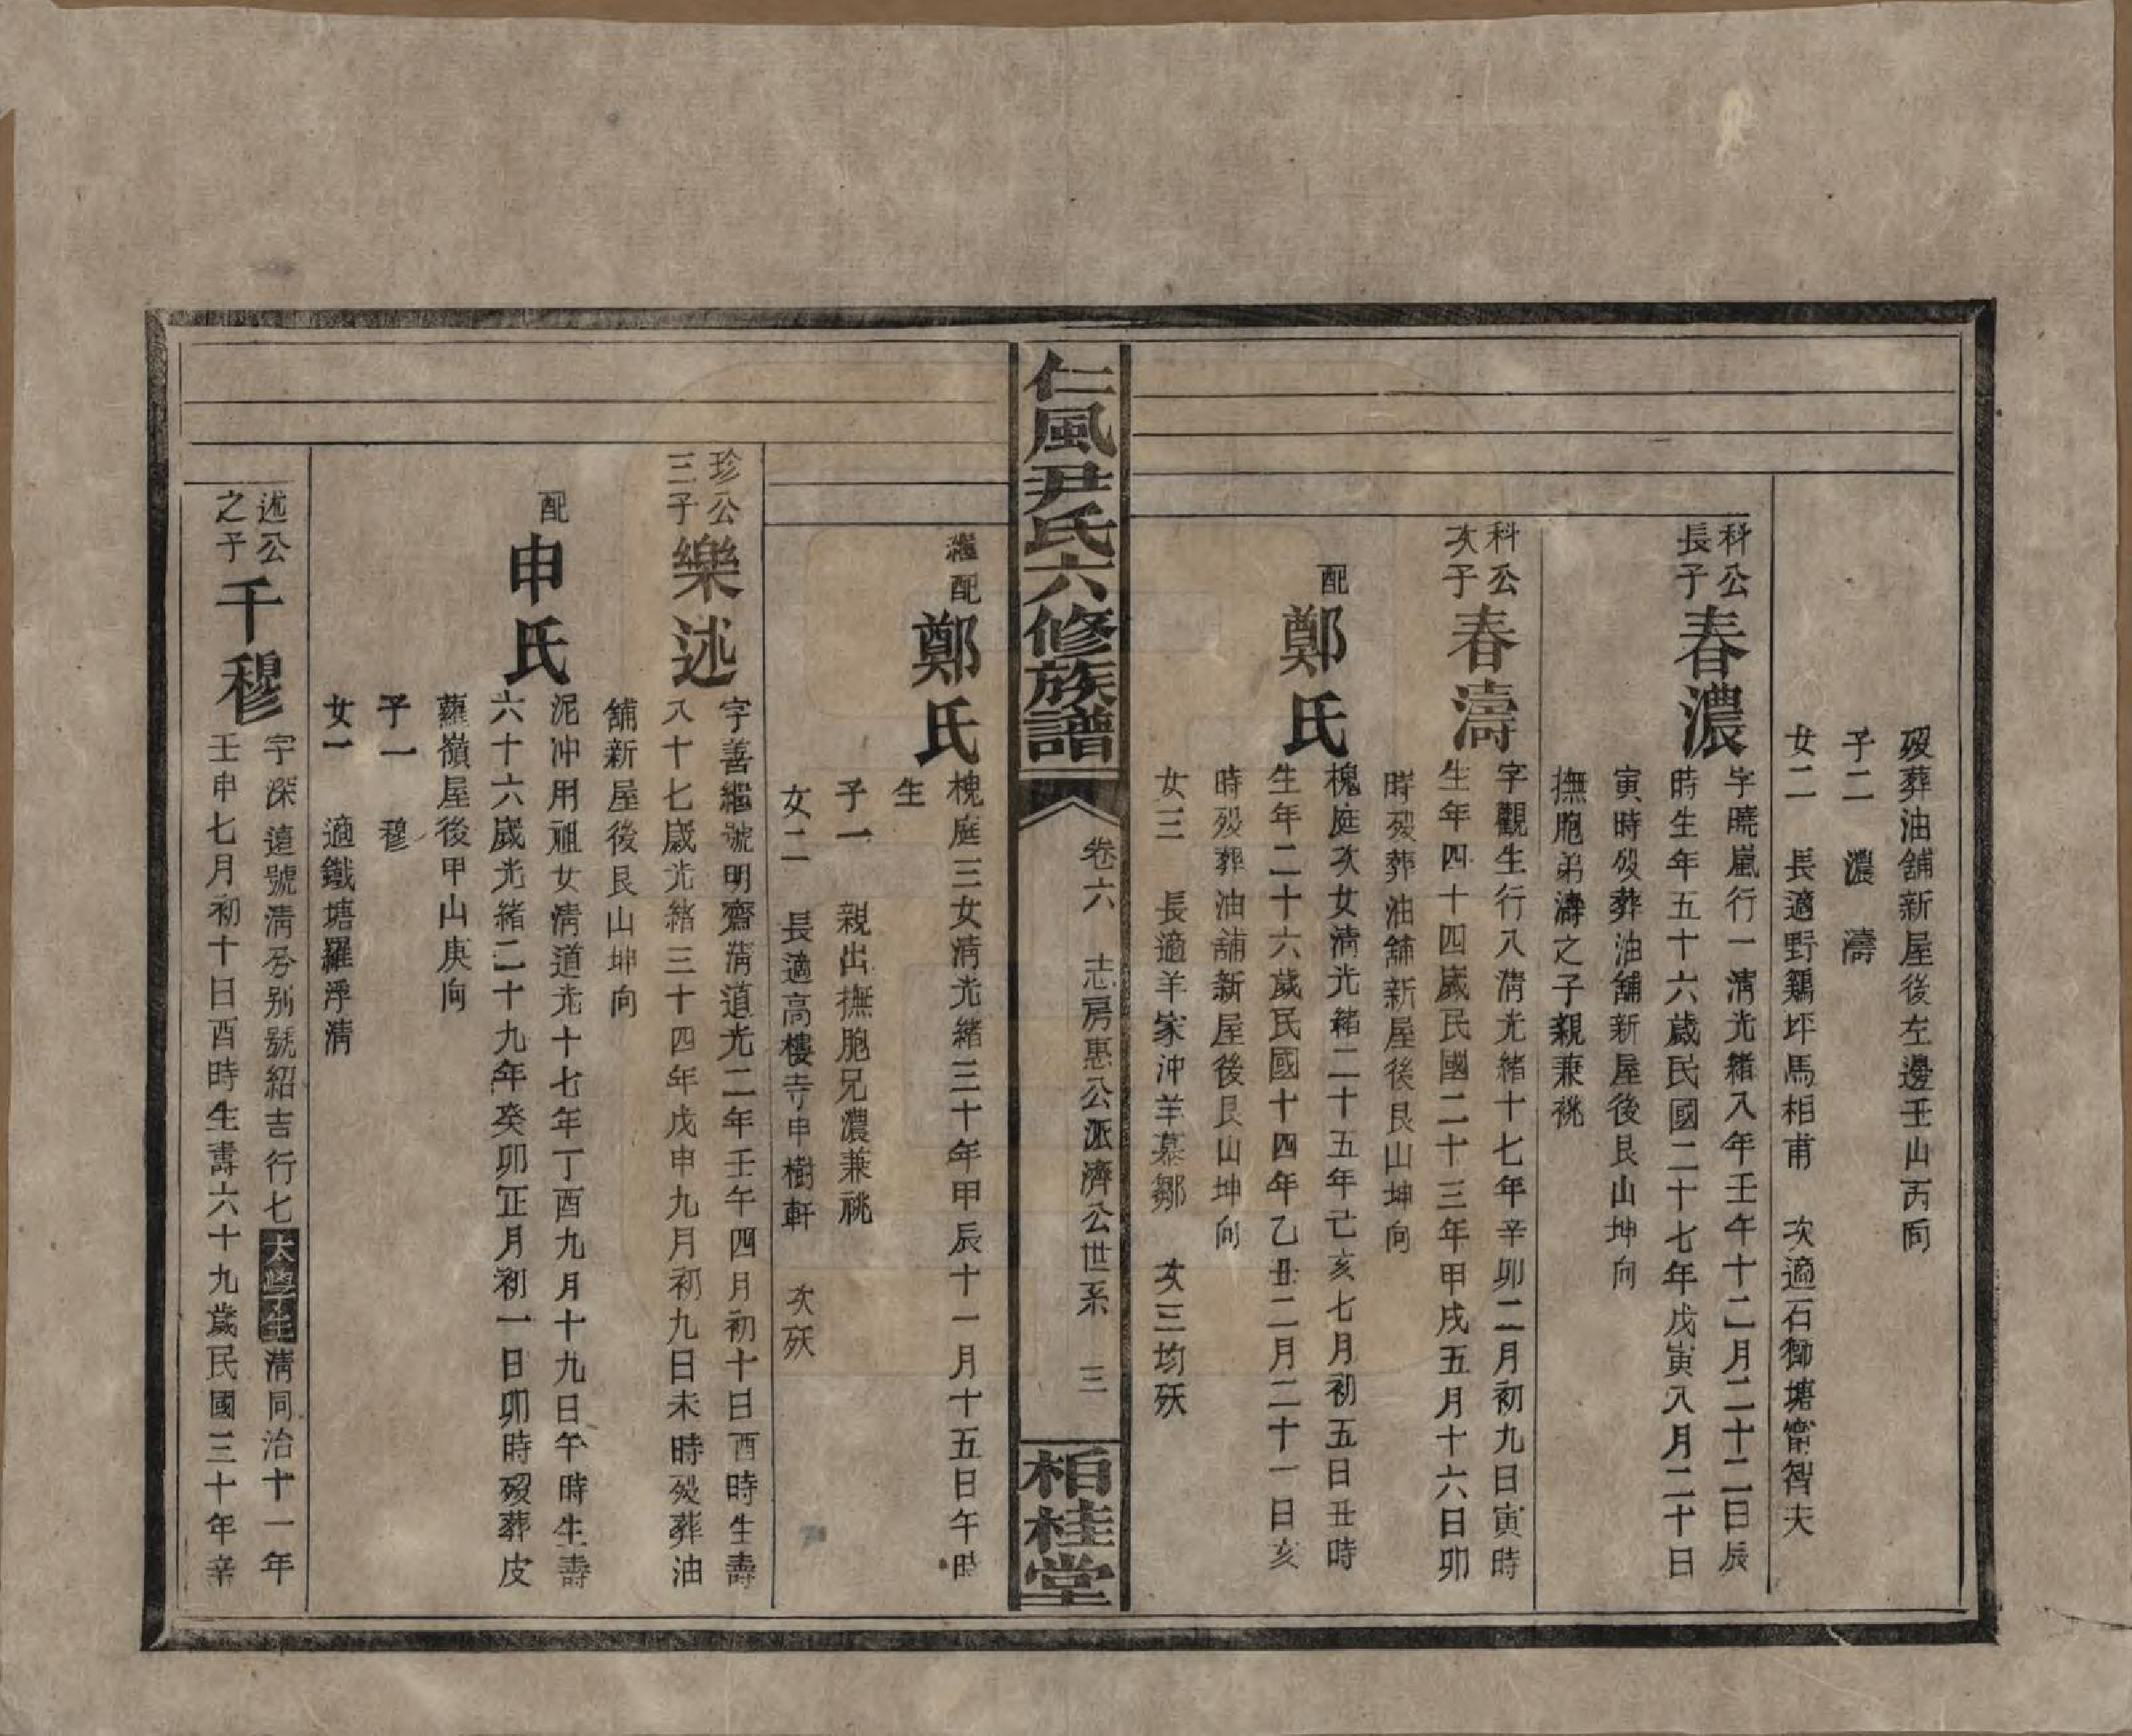 歿葬油舖新屋後左邊壬山丙向
子二　濃　濤
女二　長適野鷄坪馬相甫　次適石獅塘甯智夫
科公長子
春濃
字曉嵐行一清光緒八年壬午十二月二十二日辰
時生年五十六歲民國二十七年戊寅八月二十日
寅時歿葬油舖新屋後艮山坤向
撫胞弟濤之子親兼祧
科公次子
春濤
字觀生行八清光緒十七年辛卯二月初九日寅時
生年四十四歲民國二十三年甲戌五月十六日卯
時歿葬油舖新屋後艮山坤向
配
鄭氏
槐庭次女清光緒二十五年己亥七月初五日丑時
生年二十六歲民國十四年乙丑二月二十一日亥
時歿葬油舖新屋後艮山坤向
女三　長適羊家沖羊慕鄒　次三均殀
仁風尹氏六修族譜
卷六　志房惠公派濟公世系　三
柏桂堂
繼配
鄭氏
槐庭三女清光緒三十年甲辰十一月十五日午時
生
子一　親出撫胞兄濃兼祧
女二　長適高樓寺申樹軒　次殀
珍公三子
樂述
字善繼號明齋清道光二年壬午四月初十日酉時生壽
八十七歲光緒三十四年戊申九月初九日未時歿葬油
舖新屋後艮山坤向
配
申氏
泥沖用祖女清道光十七年丁酉九月十九日午時生壽
六十六歲光緒二十九年癸卯正月初一日卯時歿葬皮
蘿嶺屋後甲山庚向
子一　穆
女一　適鐵塘羅浮清
述公之子
千穆
字深遠號清芬別號紹吉行七太學生清同治十一年
壬申七月初十日酉時生壽六十九歲民國三十年辛